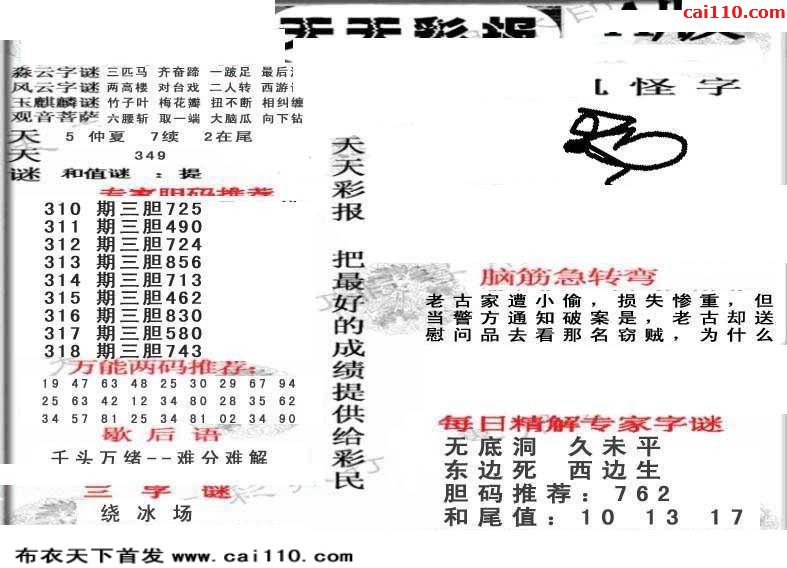 cai110.com
天天彩报
淼云字谜 三匹马 齐奋蹄 一跛足 最后
风云字谜 两高楼 对台戏 二人转 西游
玉麒麟谜 竹子叶 梅花瓣 扭不断 相纠缠
观音菩萨 六腰斩 取一端 大脑瓜 向下钻
天 5 仲夏 7续 2在尾
天 349
谜 和值谜 : 提
专家胆码推荐
310 期三胆725
311 期三胆490
312 期三胆724
313 期三胆856
314 期三胆713
315 期三胆462
316 期三胆830
317 期三胆580
318 期三胆743
万能两码推荐:
19 47 63 48 25 30 29 67 94
25 63 42 12 34 80 28 35 62
34 57 81 25 34 81 02 34 90
歇后语
千头万绪--难分难解
三字谜
绕冰场
天天彩报 把最好的成绩提供给彩民
怪字
脑筋急转弯
老古家遭小偷，损失惨重，但
当警方通知破案是，老古却送
慰问品去看那名窃贼，为什么
每日精解专家字谜
无底洞 久未平
东边死 西边生
胆码推荐: 762
和尾值: 10 13 17
布衣天下首发 www.cai110.com